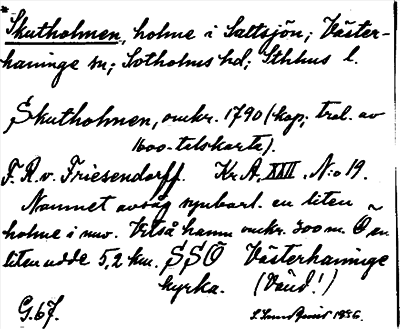 * Skutholmen, holme i Saltsjön; Väster-
haninge sn; Sotholms hd; Sthlms l.
Skutholmen, omkr. 1790 (kop; trol. av
1600-talskarta).
F. R. v. Friesendorff. Kr.A. XXII, N:o 19.
Namnet avsåg synbarl. en liten
holme i nuv. Vitså hamn omkr. 300 m. Ö en
liten udde 5,2 km. SSÖ Västerhaninge
kyrka. (Vänd!)
G. 67. 1926.